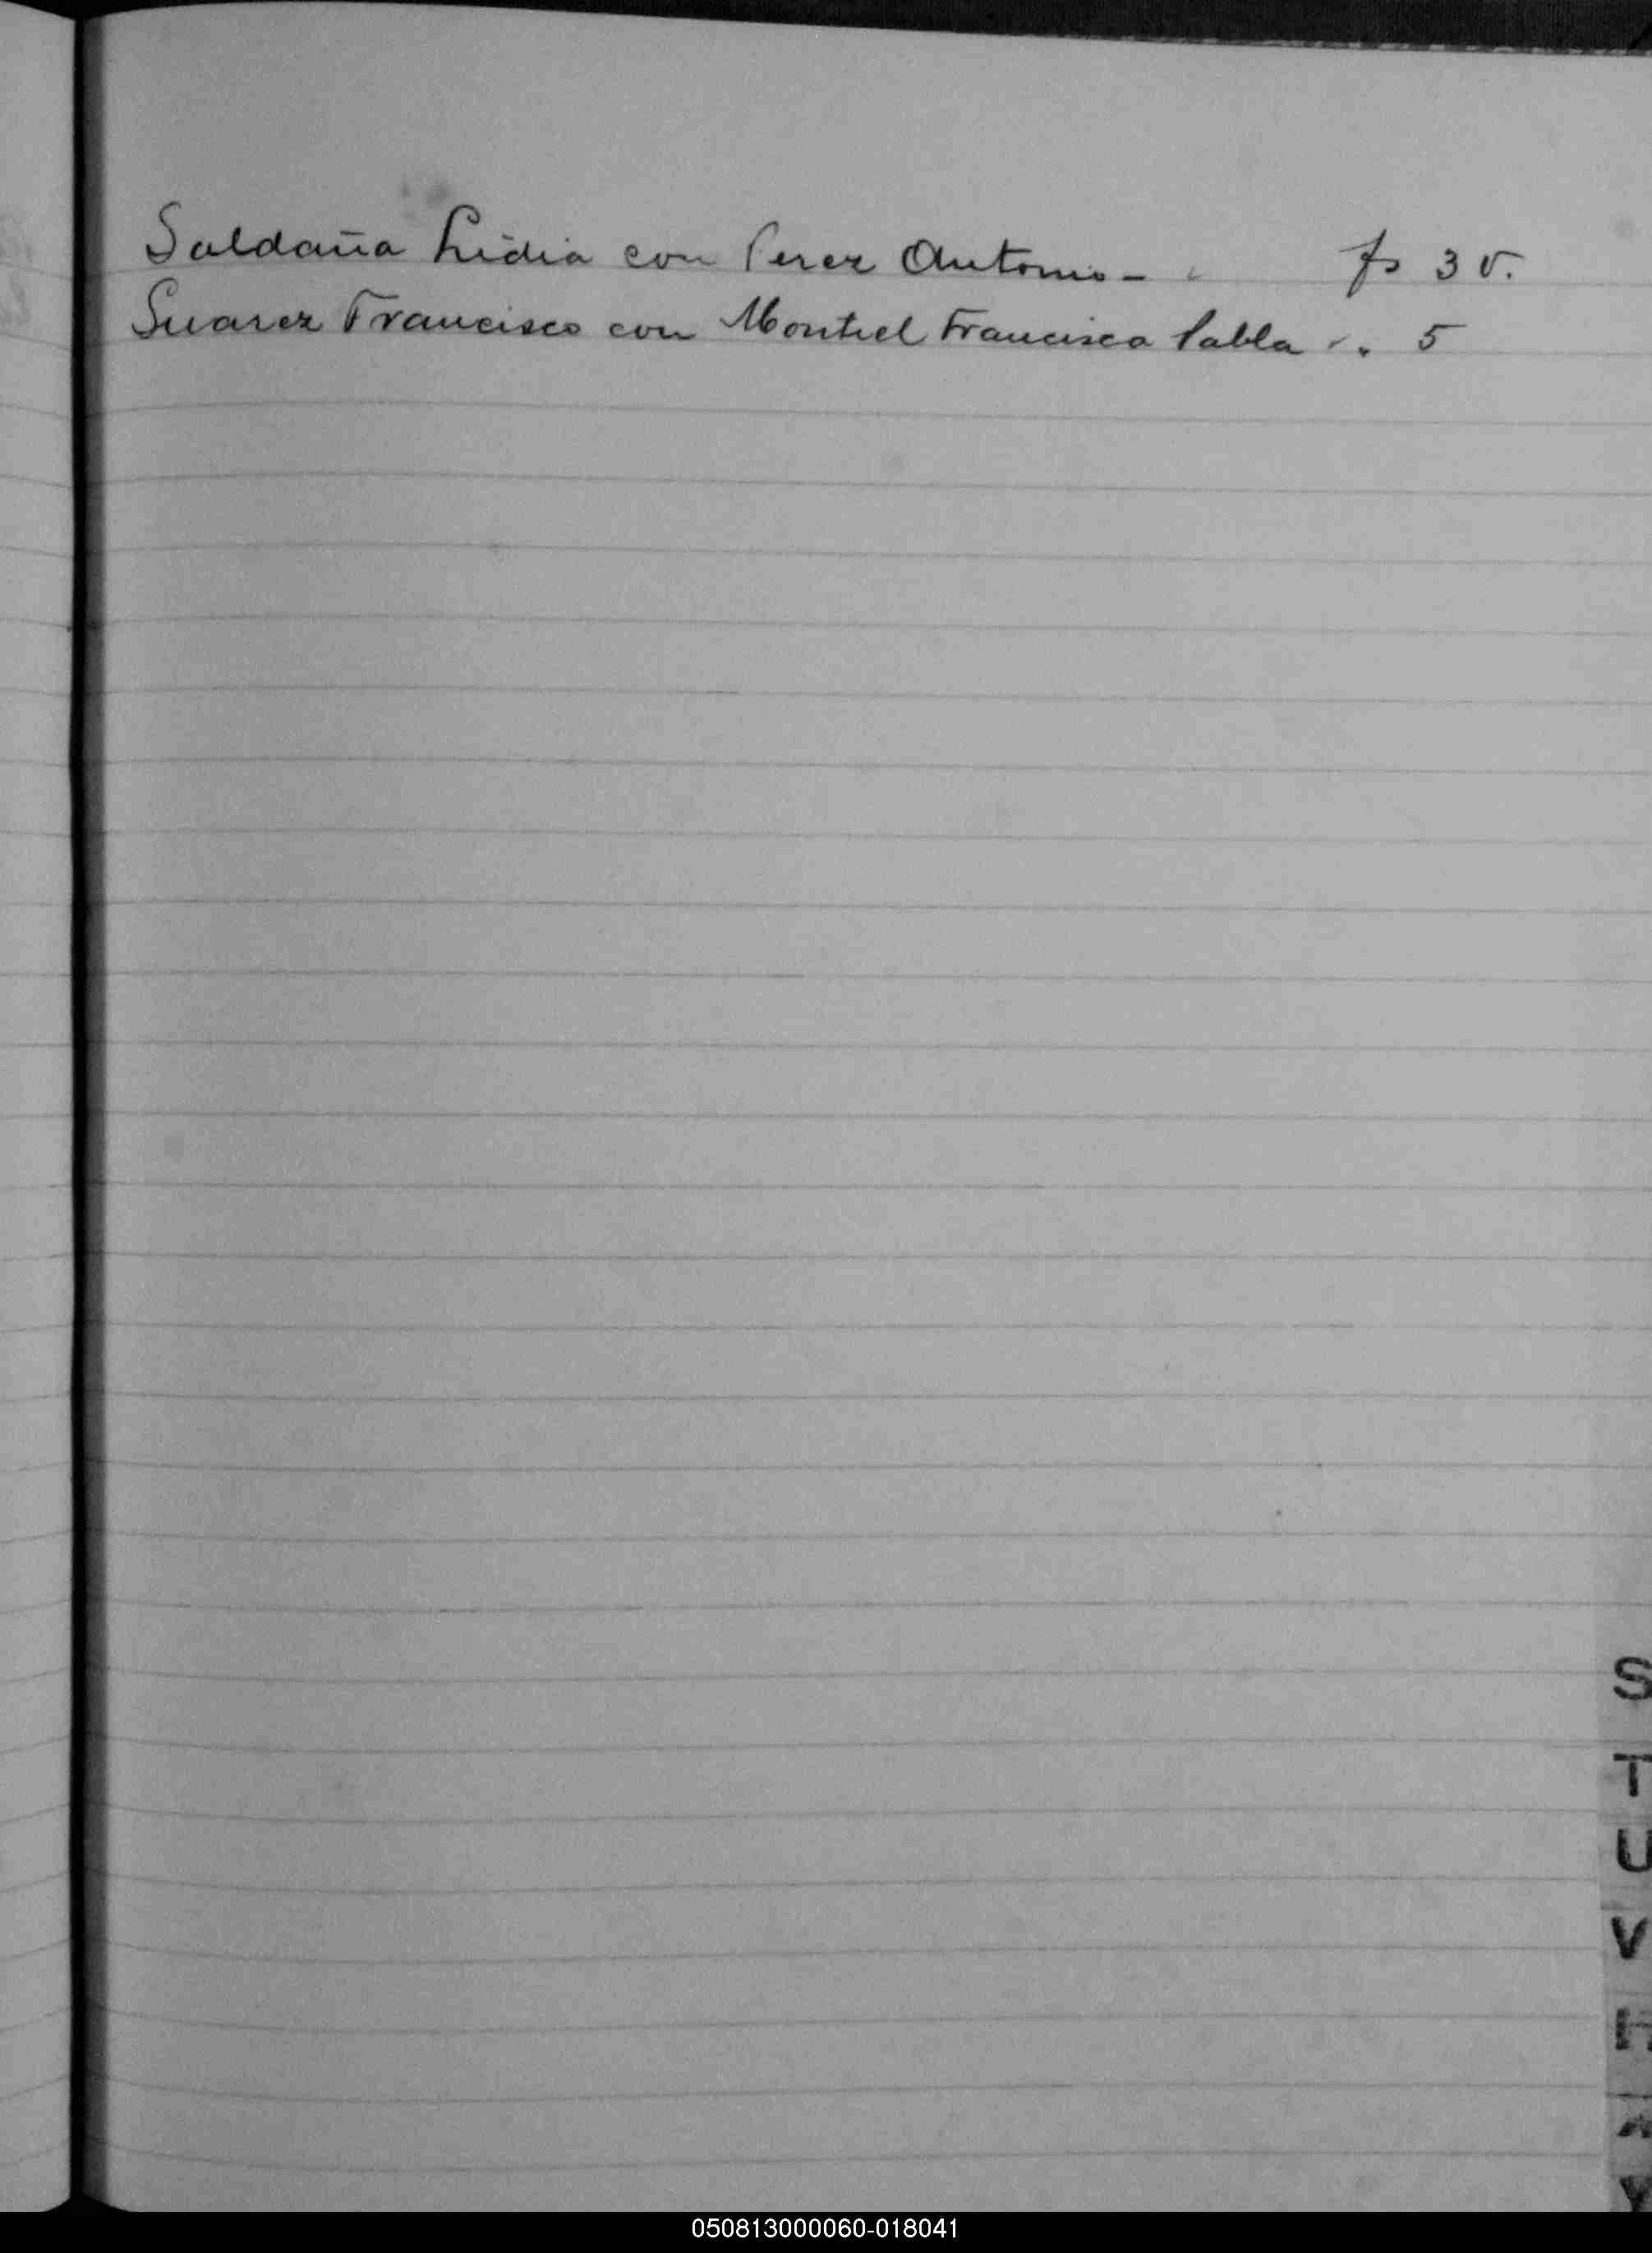 Saldaña Lidia con Perez Antonio - fs 3 v.
Suarez Francisco con Montiel Francisca Pabla " 5
S
T
U
V
Y
050813000060-018041